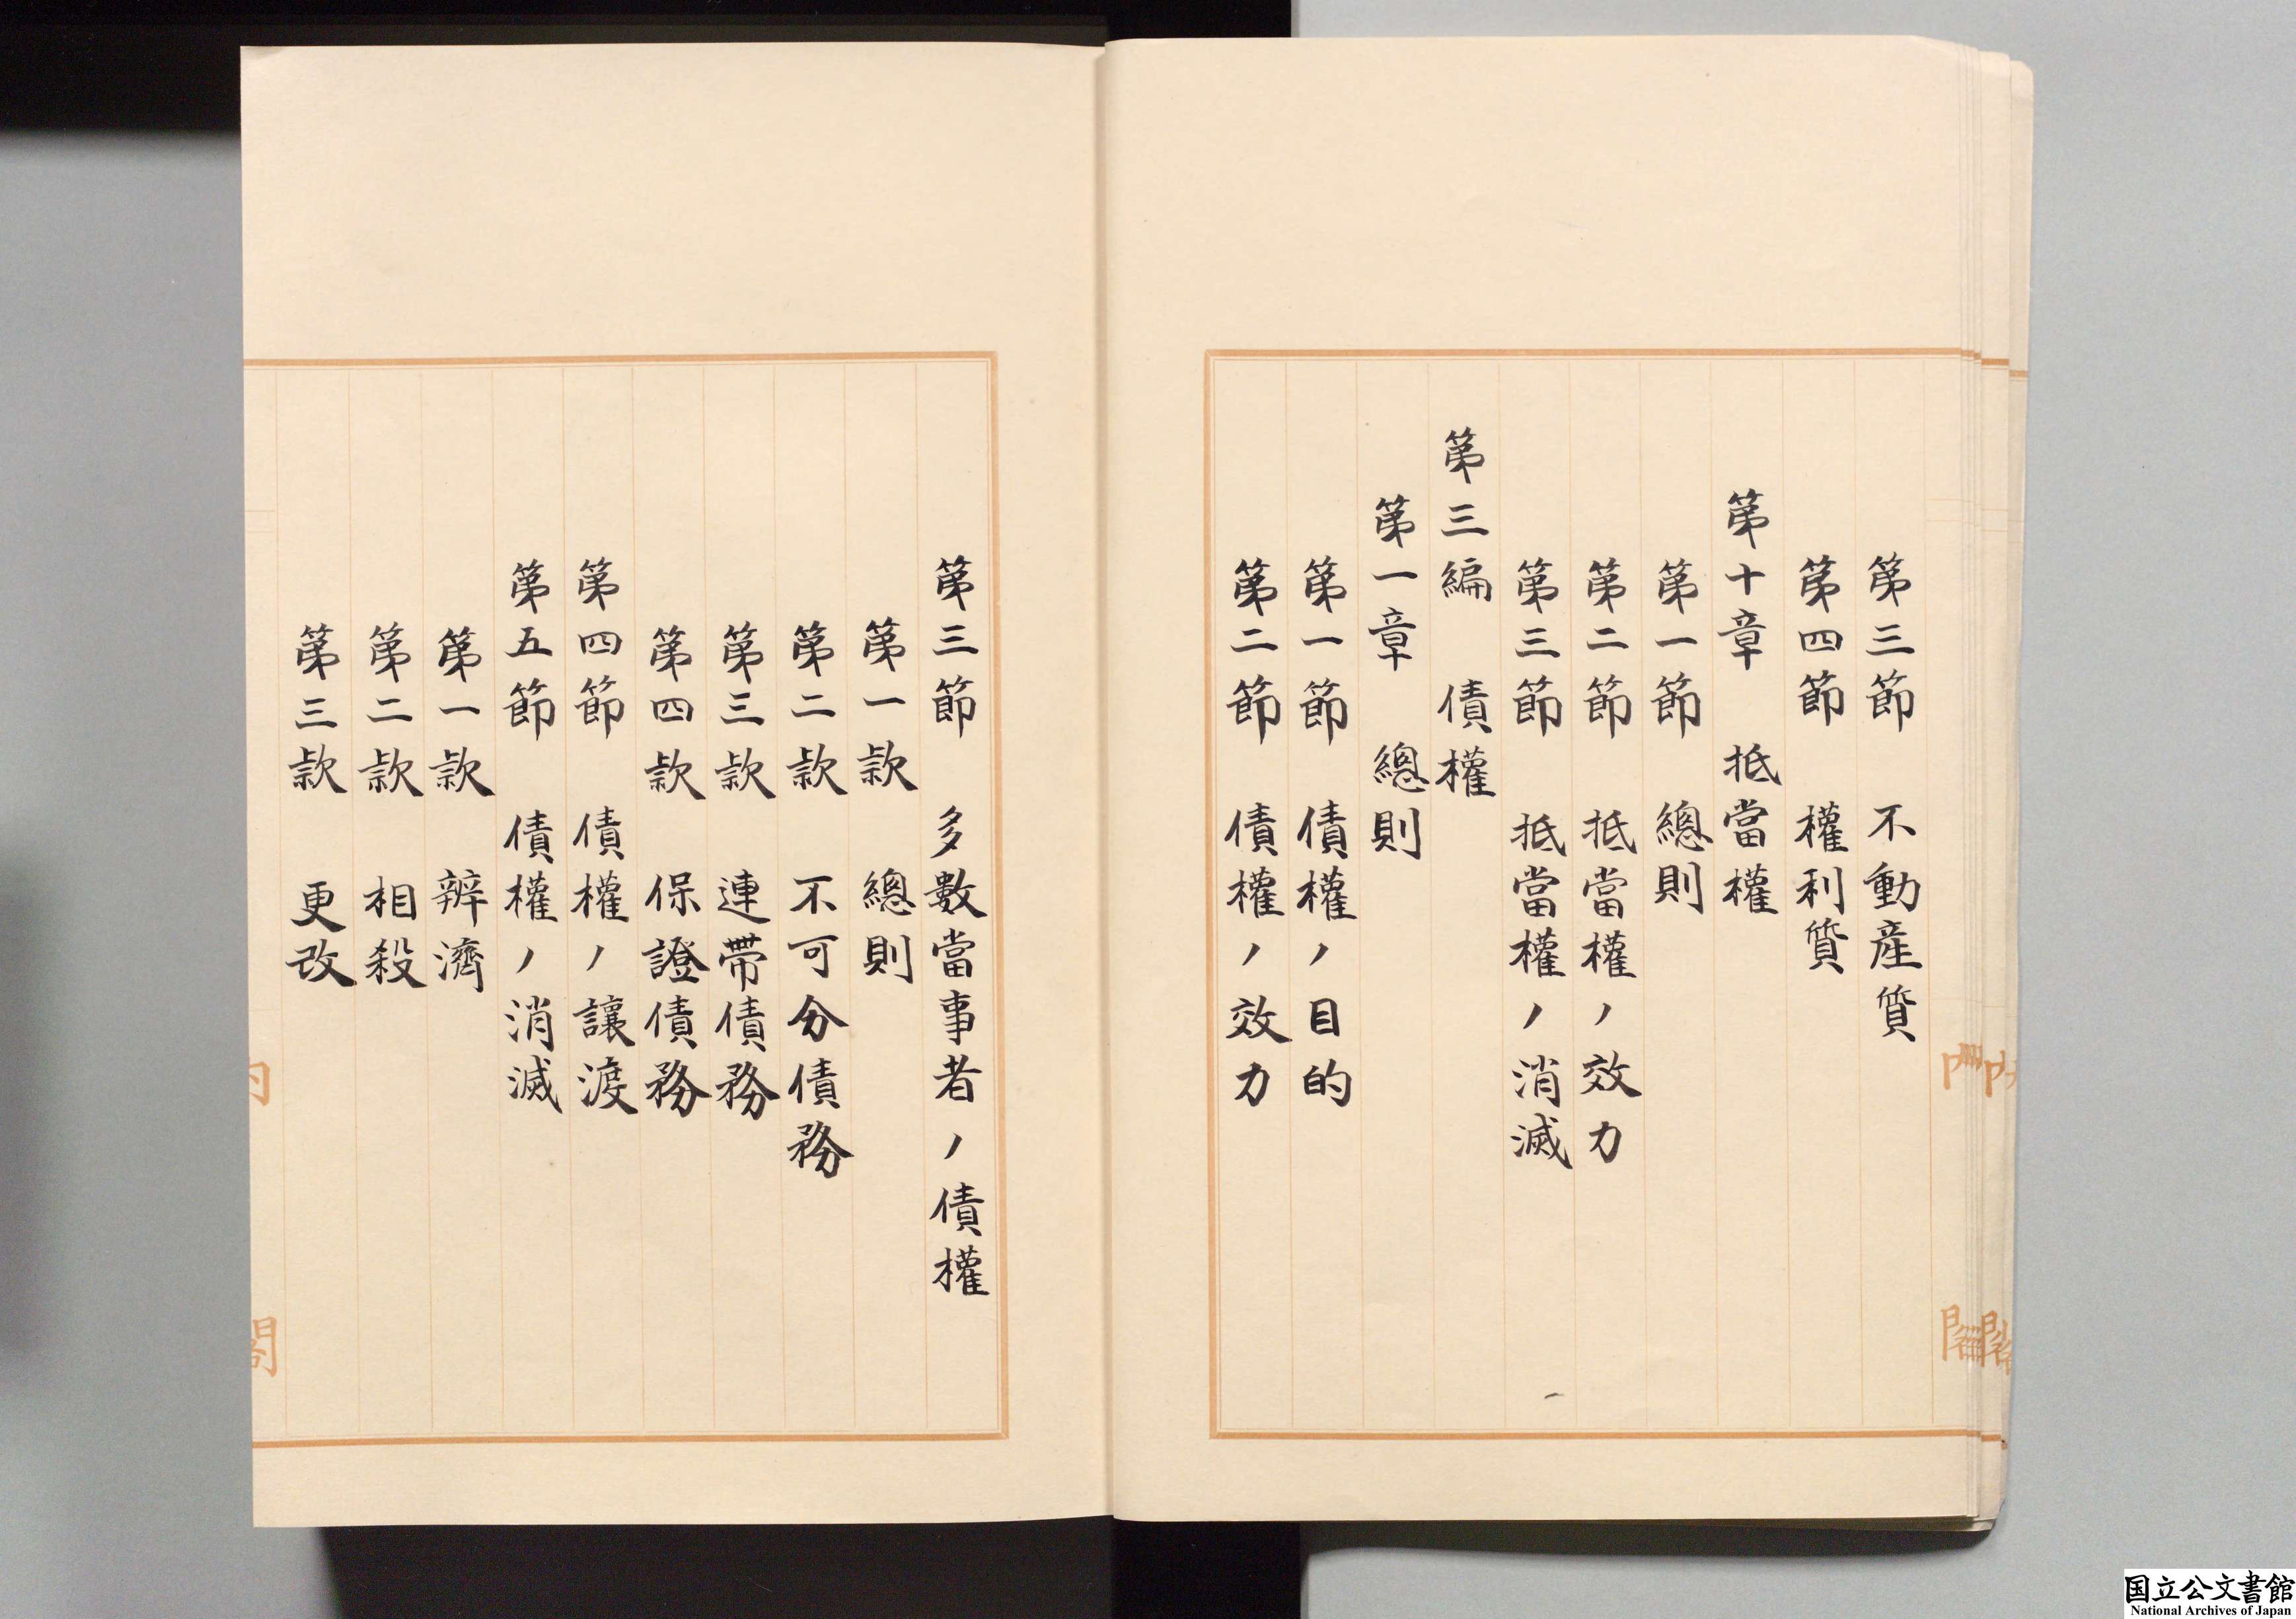 第三節 不動産質
第四節 權利質
第十章 抵當權
第一節 總則
第二節 抵當權ノ效力
第三節 抵當權ノ消滅
第三編 債權
第一章 總則
第一節 債權ノ目的
第二節 債權ノ效力
第三節 多數當事者ノ債權
第一款 總則
第二款 不可分債務
第三款 連帶債務
第四款 保證債務
第四節 債權ノ讓渡
第五節 債權ノ消滅
第一款 辨濟
第二款 相殺
第三款 更改
内閣
国立公文書館
National Archives of Japan